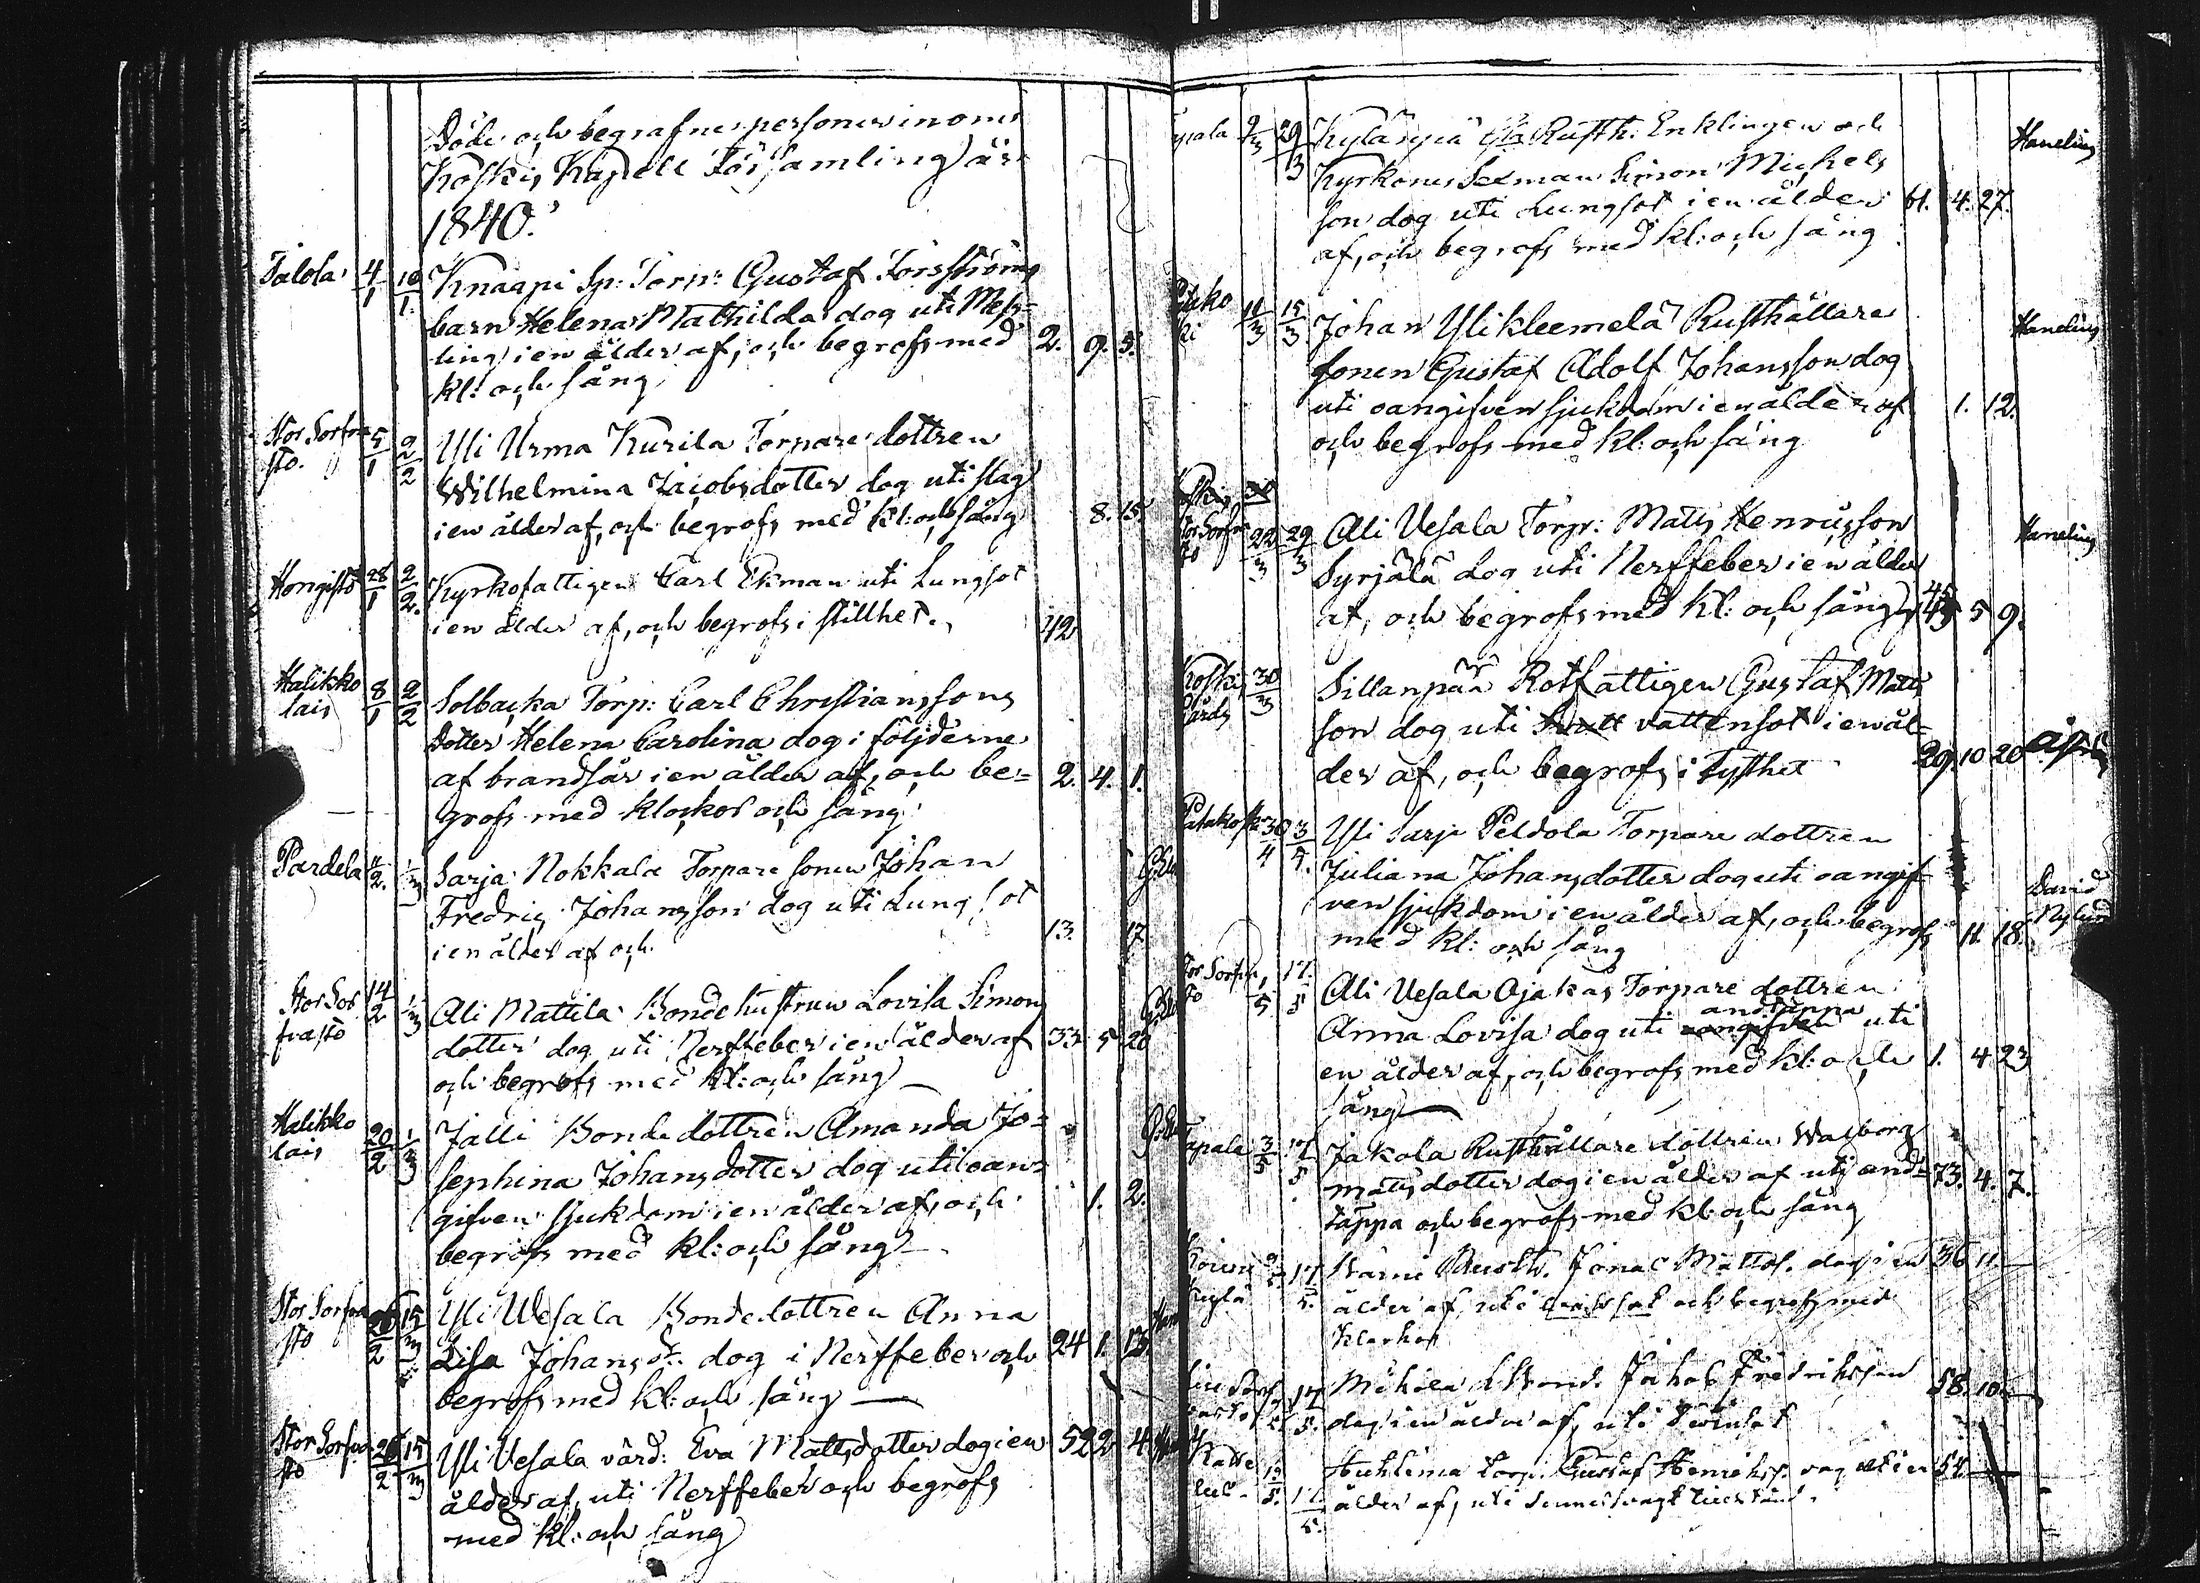 Döde och begrafne personer inom
Koskis Kapell Församling år
1840.
Talola 4/1 10/1 Knaapi Sp: Torp: Gustaf Forsströms
barn Helena Mathilda dog uti Mess-
ling i en ålder af, och begrofs med 2. 9. 5.
kl: och sång
Stor Sorfva 5/1 2/2 Yli Urma Kurila Torpare dottren
sto. Wilhelmina Jacobsdotter dog uti slag
i en ålder af, och begrofs med kl: och sång 8. 15.
Hongisto 28/1 2/2. Kyrkofattigen Carl Ekman uti Lungsot
i en ålder af, och begrofs i stillhet. 42
Halikko 8/1 2/2 Solbacka Torp: Carl Christianssons
lais dotter Helena Carolina dog i följderne
af brandsår i en ålder af, och be= 2. 4. 1.
grofs med klockor och sång
Pardela /2. 1/3 Sarja Nokkala Torpare sonen Johan
Fredric Johansson dog uti Lungsot
i en ålder af och 13. 17
Stor Sor 14/2 1/3 Ali Mattila Bonde hustrun Lovisa Simons
frasto dotter dog uti Nerffeber i en ålder af 33 5 20
och begrofs med kl: och sång
Halikko 20/2 1/3 Jalli Bonde dottren Amanda Jo=
lais sephina Johansdotter dog uti oan=
gifven sjukdom i en ålder af, och 1. 2.
begrofs med kl: och sång
Stor Sorfva 26/2 15/3 Yli Wesala Bondedottren Anna
sto Lisa Johansdt. dog i Nerffeber och 24 1. 13.
begrofs med kl: och sång
Stor Sorfva 26/2 15/3 Yli Vesala värd: Eva Mattsdotter dog i en 52 2 4
sto ålder af, uti Nerffeber och begrofs
med kl: och sång
Tapala 9/3 29/3 Kylänpää Rusth: Enklingen och Hanelius
Kyrkones Sexman Simon Michels
son dog uti Lungsot i en ålder 61. 4. 27.
af, och begrofs med kl: och sång
Patako 11/3 15/3 Johan Ylikleemelä Rusthållare Hanelius
ki sonen Gustaf Adolf Johansson dog
uti oangifven sjukdom i en ålder af 1. 12.
och begrofs med kl: och sång
Stor Sorfva 22/3 29/3 Ali Vesala Torp: Matts Henricsson Hanelius
sto Syrjälä dog uti Nerffeber i en ålder
af, och begrofs med kl: och sång 45 5 9.
Koskis 30/3 Sillanpää Rotfattigen Gustaf Matts
Gårds son dog uti vattensot i en ål-
der af, och begrofs i tysthet 29. 10 20
Patakoski 30/4 3/5. Yli Sarja Peldola Torpare dottren
Juliana Johansdotter dog uti oangif- David
ven sjukdom i en ålder af, och begrofs 11. 18. Nylund
med kl: och sång
Stor Sorfva /5 17/5 Ali Vesala Ojakas Torpare dottren
sto andtäppa
Anna Lovisa dog uti oangifven uti
en ålder af, och begrofs med kl: och 1. 4 23
sång
Tapala 3/5 17/5 Jakola Rusthållare dottren Walborg
Mattsdotter dog i en ålder af uti and= 73. 4. 7.
täppa och begrofs med kl: och sång
Rusth. Jonas Mattss. dog i en 36 11
ålder af, uti och begrofs med
Klockor
17/5. Jakob Fredriksson 58. 10
dog i en ålder af, uti
17/5. Torp. Gustaf Henrikss. dog uti en 54
ålder af, uti